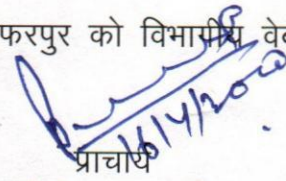 फरपुर को विभागीय
16/4/2020
प्राचार्य